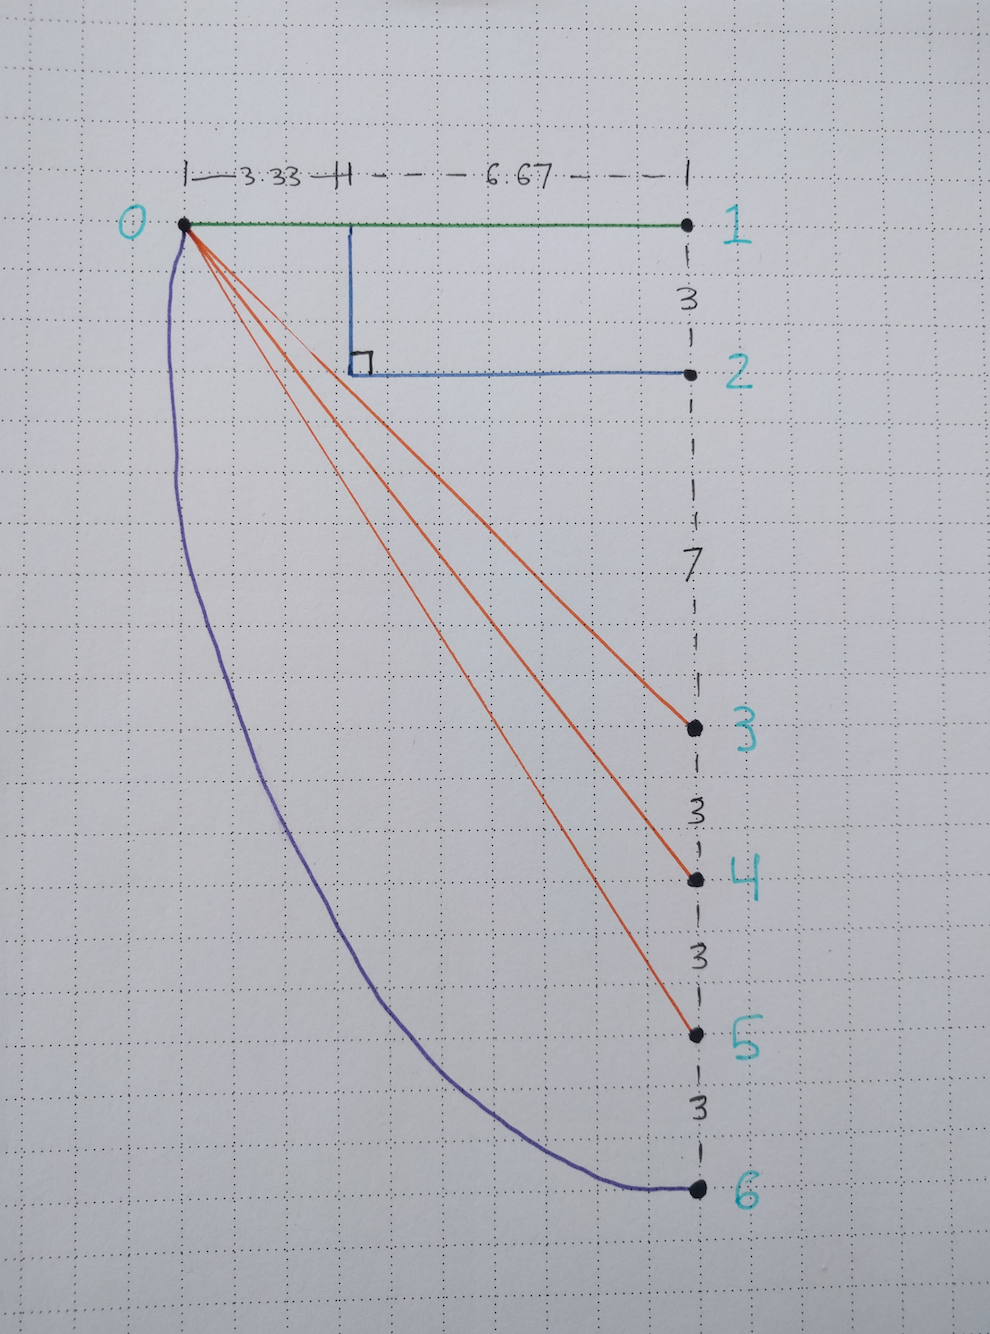 3.33 6.67
0 1
3
2
7
3
3
4
3
5
3
6